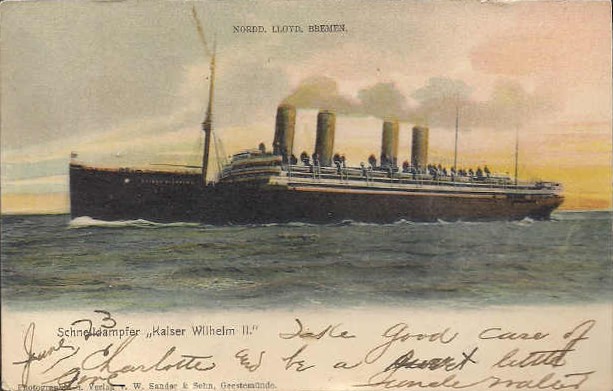 NORDD. LLOYD, BREMEN.
Schnelldampfer „Kaiser Wilhelm II.“
June 23
Take Good care of
Charlotte & be a little
Photographie u. Verlag v. W. Sander & Sohn, Geestemünde.